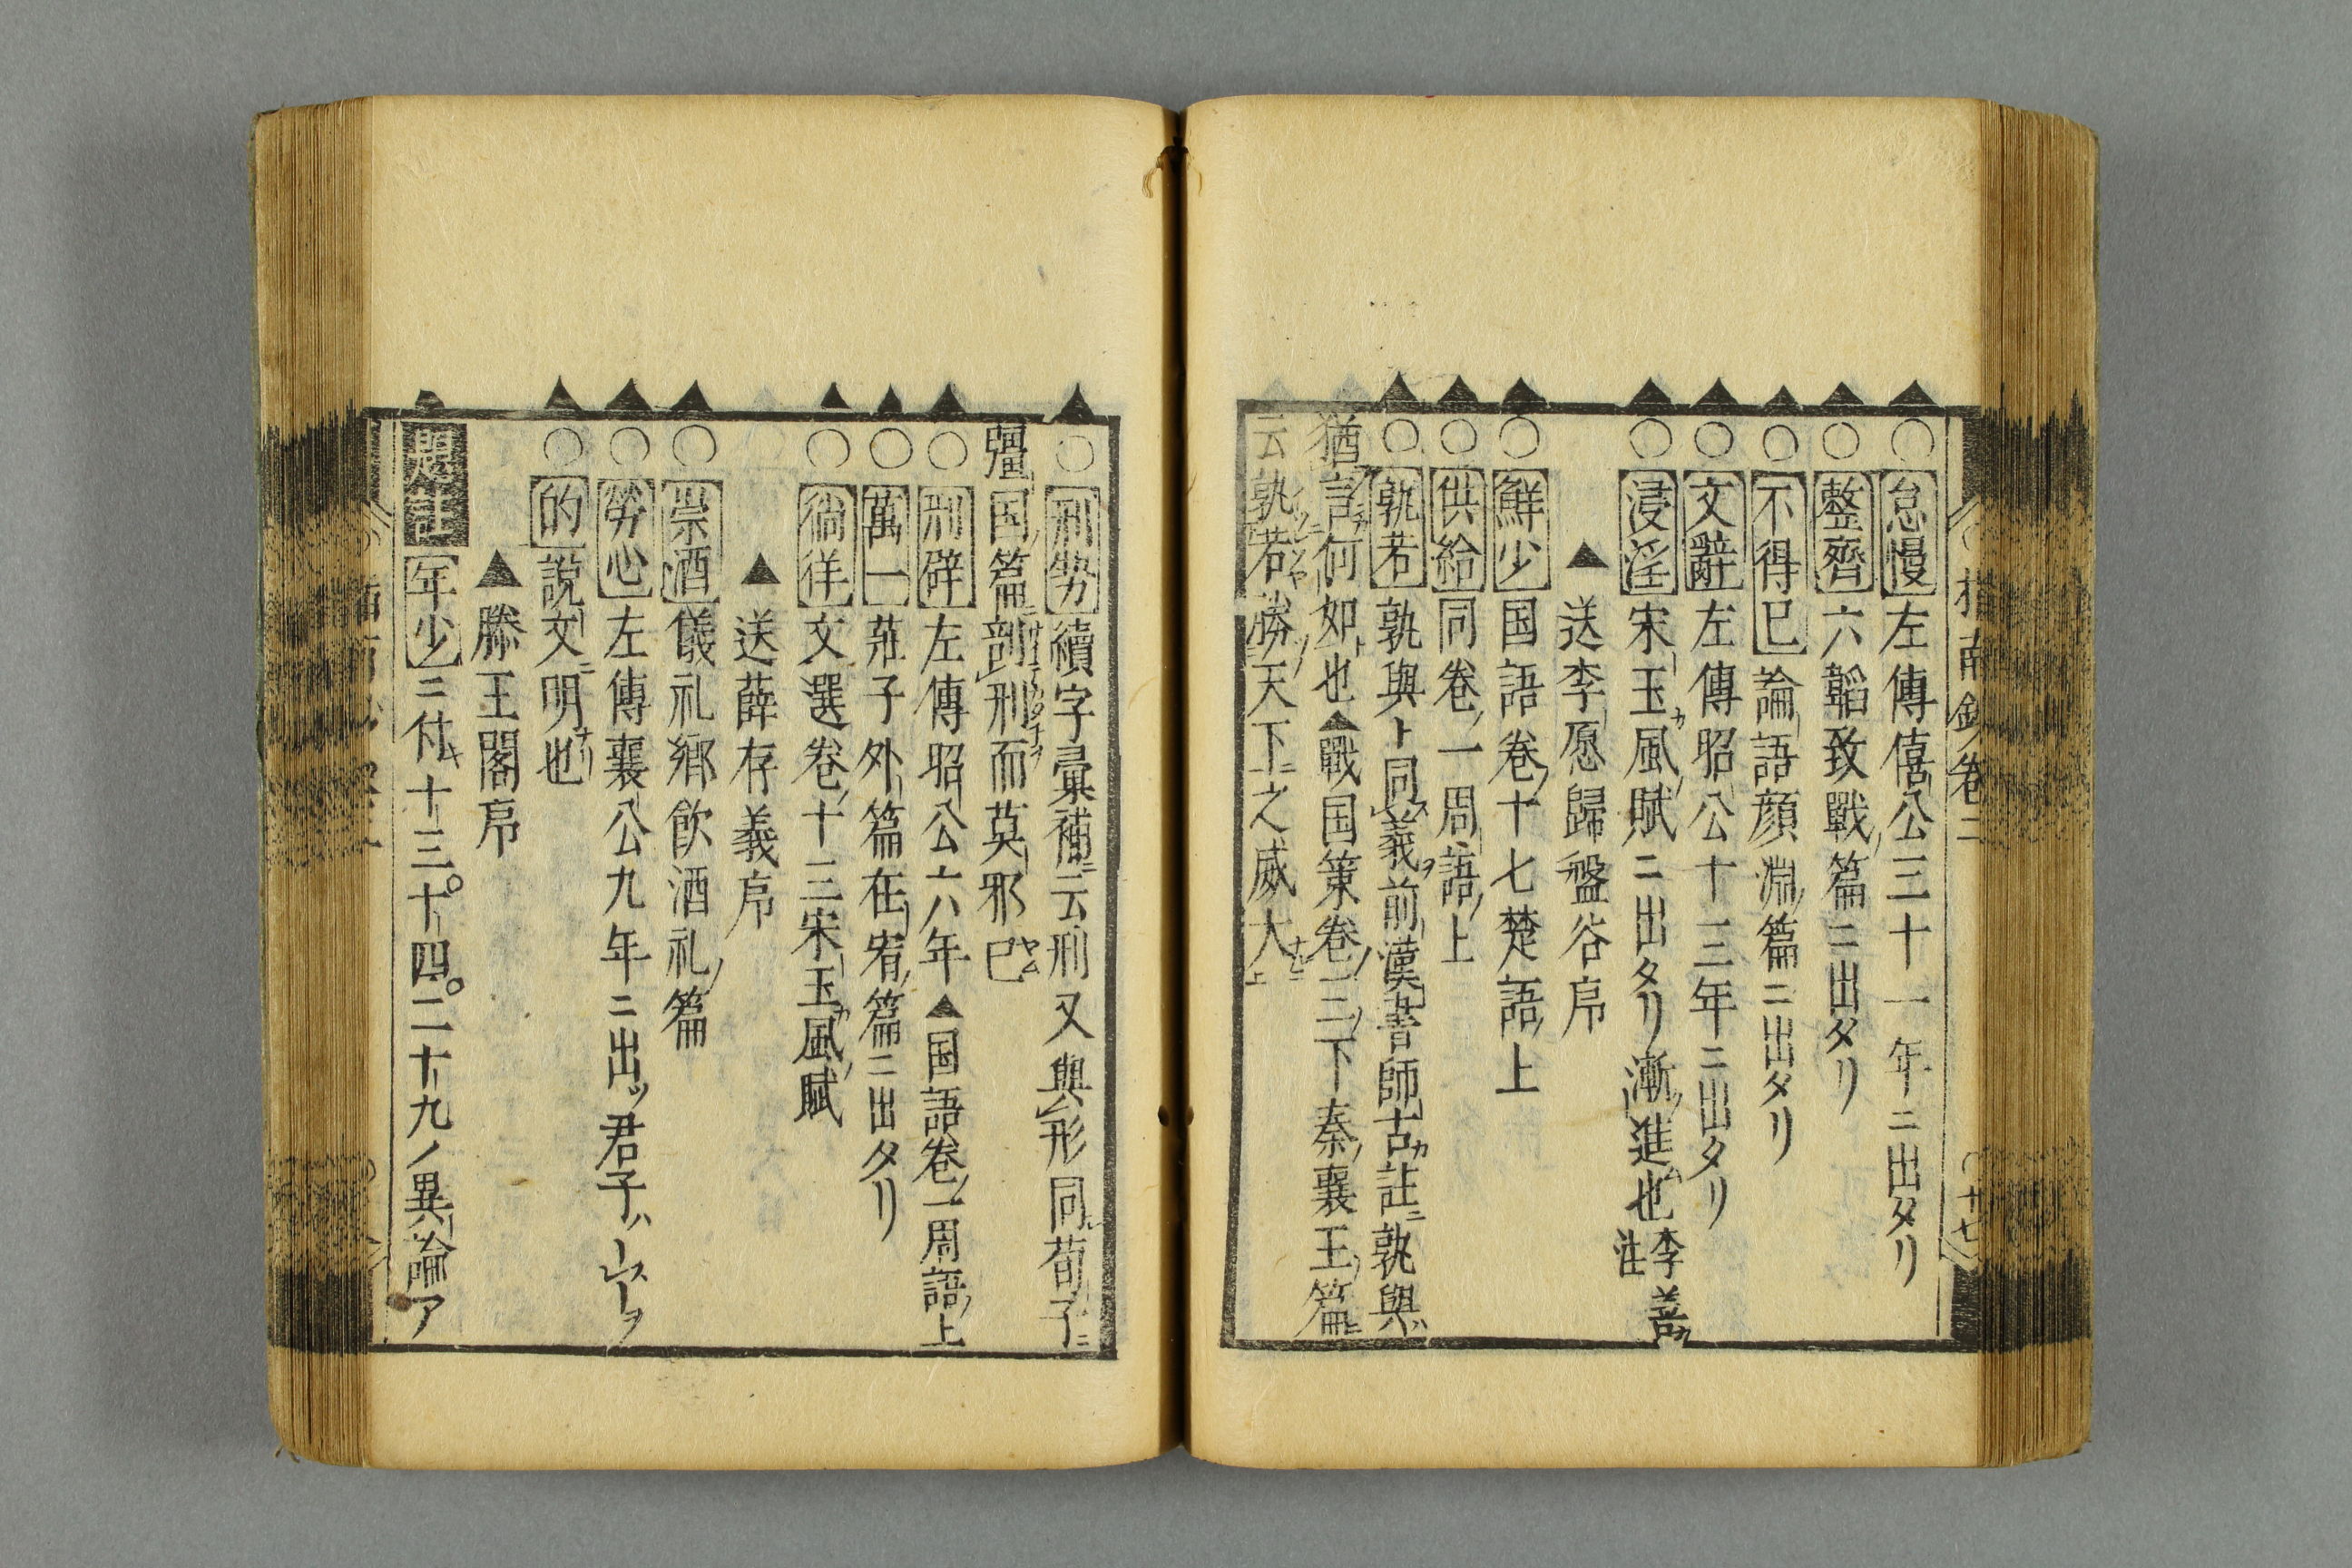 指南鈔卷二 十七
○怠慢左傳僖公三十一年ニ出タリ
○整齊六韜致戰篇ニ出タリ
○不得已論語顔淵篇ニ出タリ
○文辭左傳昭公十三年ニ出タリ
○浸淫宋玉カ風賦ニ出タリ漸進也李善カ注
▲送李愿歸盤谷序
○鮮少国語卷ノ十七楚語ノ上
○供給同卷ノ一周語ノ上
○孰若孰與ト同義前漢書師古カ註ニ孰與ハ
猶言何如也▲戰国策卷ノ三下秦ノ襄王ノ篇ニ
云孰若勝天下之威大
○刑勢續字彙補ニ云刑又與形同荀子ニ
彊国篇剖刑而莫邪已
○刑辟左傳昭公六年▲国語卷ノ一周語ノ上
○萬一莊子外篇在宥篇ニ出タリ
○徜徉文選卷ノ十三宋玉カ風ノ賦
▲送薛存義序
○崇酒儀礼郷飲酒礼ノ篇
○勞心左傳襄公九年ニ出ツ君子ハ
○的説文ニ明也
▲滕王閣序
愚註年少ニ付十三。十四。二十九ノ異論ア